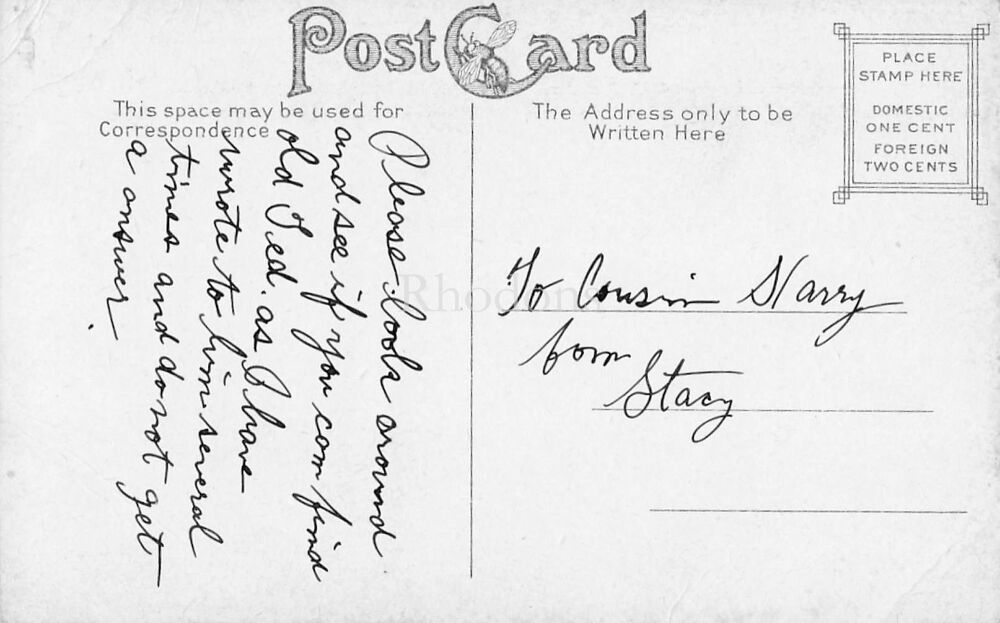 Post Card
This space may be used for
Correspondence
The Address only to be
Written Here
PLACE
STAMP HERE
DOMESTIC
ONE CENT
FOREIGN
TWO CENTS
Please look around
and see if you can find
old Ted. as I have
wrote to him several
times and do not get
a answer.
To Cousin Harry
from
Stacy